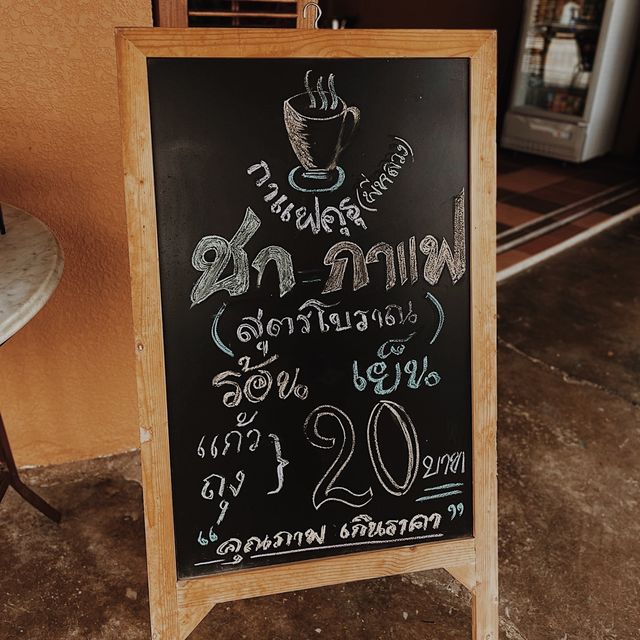 กาแฟคุรุ (ผีหลวง)
ชา - กาแฟ
(สูตรโบราณ)
ร้อน เย็น
แก้ว
ถุง } 20 บาท
"คุณภาพ เกินราคา"